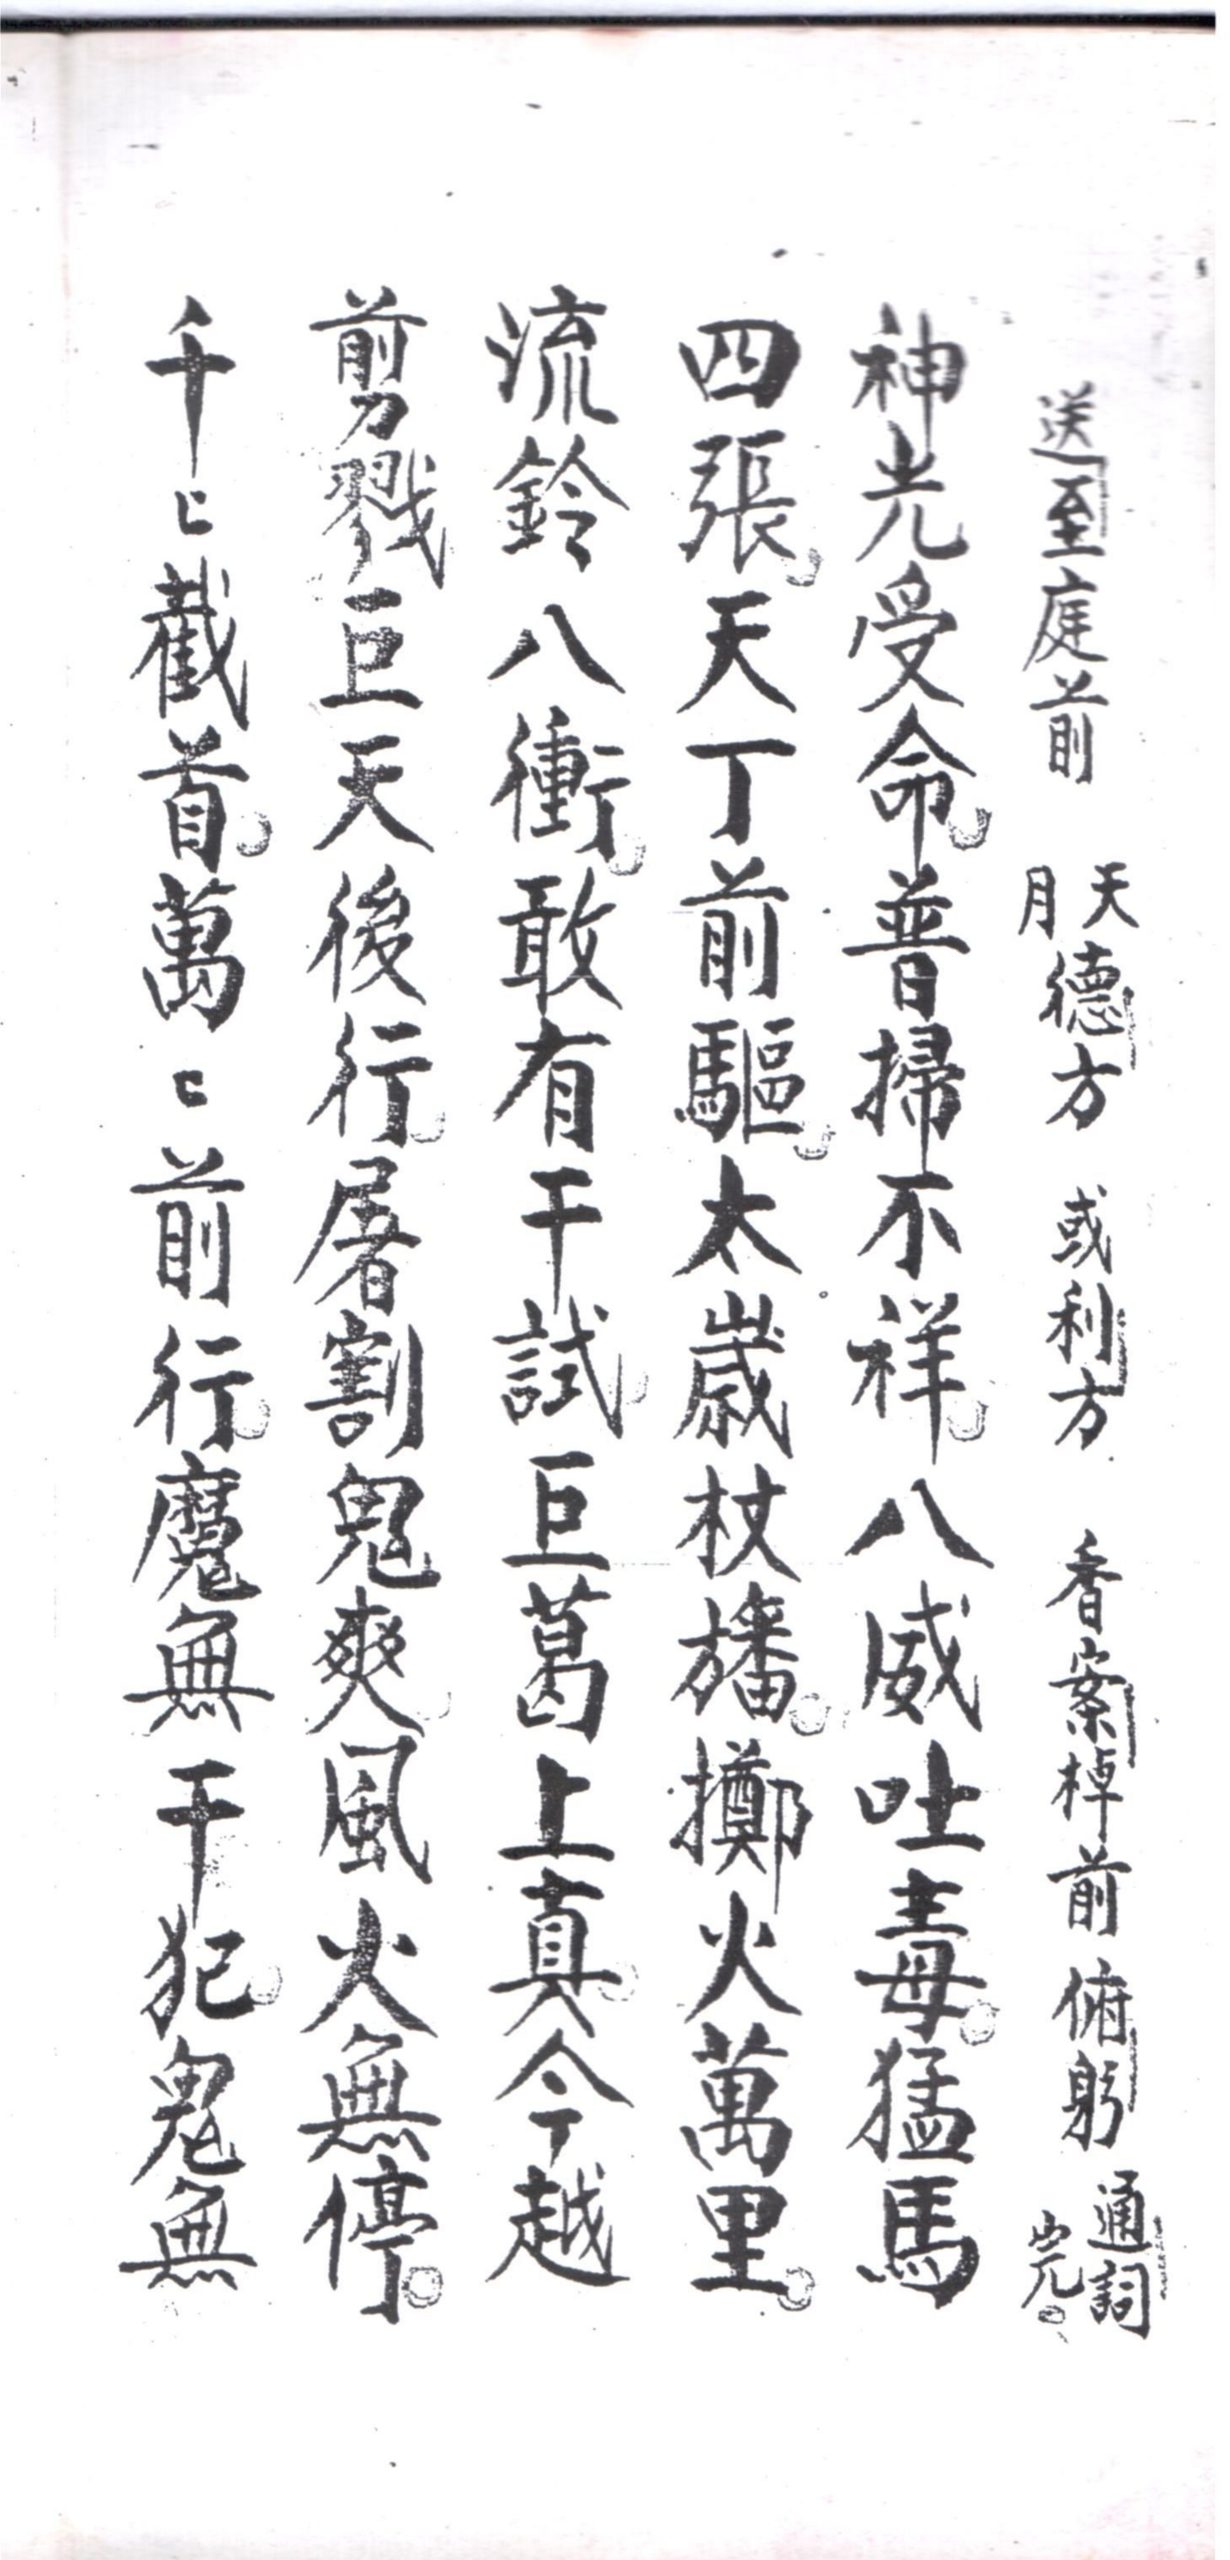 送至庭前 天月德方 或利方 香案棹前俯躬 通詞完。
神光受命。普掃不祥。八威吐毒。猛馬
四張。天丁前驅。太歲杖旛。擲火萬里。
流鈴八衝。敢有干試。巨葛上真。今越
剪戮巨天後行。屠割鬼爽。風火無停。
千〻截首。萬〻前行。魔無干犯。鬼無